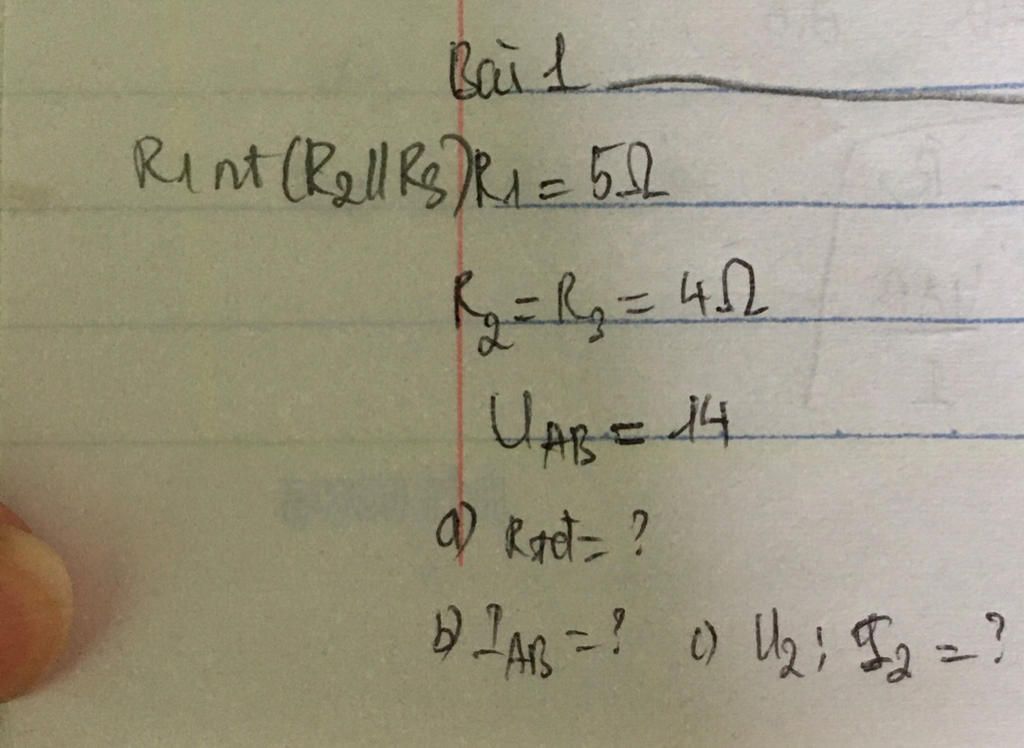 Bài 1
R1 nt (R2 // R3) R1 = 5Ω
R2 = R3 = 4Ω
UAB = 14
a) Rtđ = ?
b) IAB = ? c) U2; I2 = ?